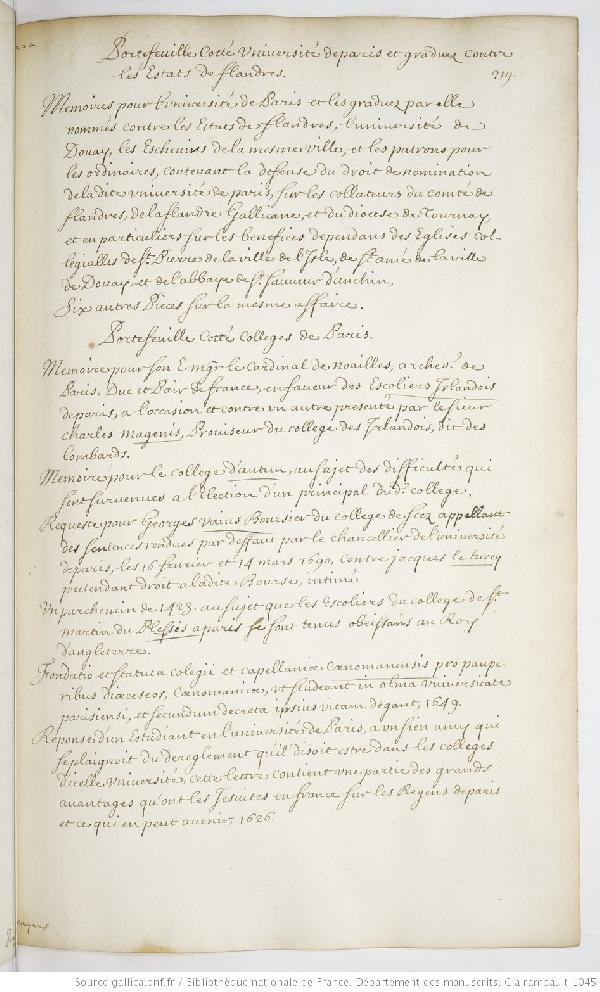 Portefeuille Cotté Université de paris et graduez contre
les Estats de flandres.
219
Memoires pour l'université de Paris et les graduez par elle
nommés contre les Estats de flandres, l'université de
Douay, les Eschevins de la mesme ville, et les patrons pour
les ordinaires, contenant la defense du droit de nomination
de la dite université de paris, sur les collateurs du comté de
flandres, de la flandre Gallicane, et du diocese de Tournay
et en particuliers sur les benefices dependans des Eglises col-
legialles de St. Pierre de la ville de l'Isle, de st. amé de la ville
de Douay, et de l'abbaye de St. sauveur d'anchin,
Six autres Pieces sur la mesme affaire.
Portefeuille Cotté Colleges de Paris.
Memoire pour son E. mgr. le Cardinal de noailles, archev. de
Paris, Duc et Pair de france, en faveur des Escoliers Irlandois
de paris, a l'occasion et contre un autre presenté par le sieur
Charles Magenis, Proviseur du college des Irlandois, dit des
lombards.
Memoire pour le college d'autun, au sujet des difficulté qui
sont survenues a l'Election d'un principal dud. college,
Requeste pour Georges vaius Boursier du college de seez appellant
des sentences rendues par deffaut par le chancellier de l'université
de paris, les 16 fevrier et 14 mars 1690, contre jacques le turcq
pretendant droit a ladite Bourse, intimé
Un parchemin de 1423. au sujet que les Escoliers du college de St.
martin du Plessis a paris se sont tenus obeissans au Roy
d'angleterre.
Fondatio et statuta colegii et capellaniæ Cænomanensis pro paupe-
ribus diæceseos, Cænomaniæ, ut studeant in alma universitate
parisiensi, et secundum decreta ipsius vitam degant, 1649.
Réponse d'un Estudiant en l'université de Paris, a un sien amy qui
se plaignoit du dereglement qu'il disoit estre dans les colleges
d'icelle université, cette lettre contient une partie des grands
avantages qu'ont les Jesuites en france sur les Regens de paris
et ce qui en peut avenir, 1626.
Source gallica.bnf.fr / Bibliothèque nationale de France. Département des manuscrits. Clairambault 1045